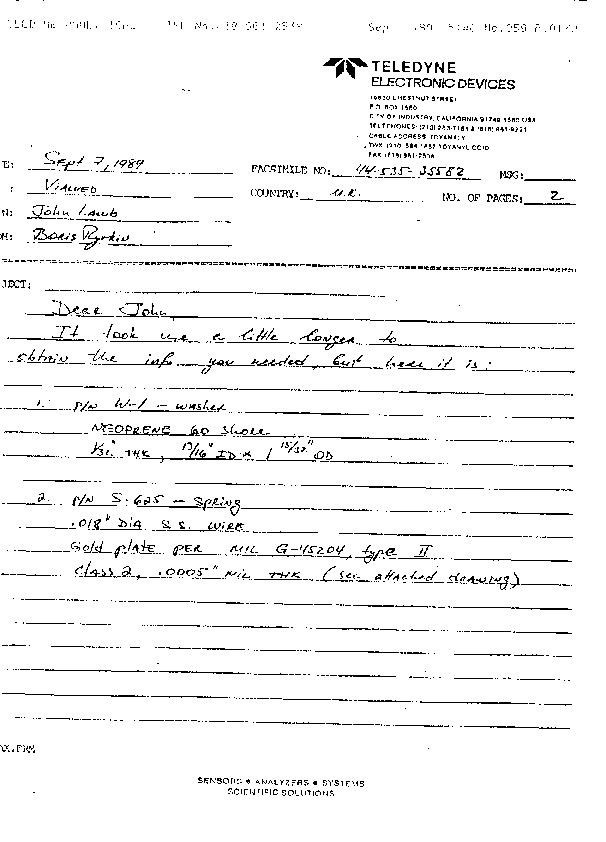 TELEDYNE
ELECTRONIC DEVICES
16830 CHESTNUT STREET
P.O. BOX 1580
CITY OF INDUSTRY, CALIFORNIA 91749-1580 USA
TELEPHONES:
CABLE ADDRESS: TDYANALY
TWX (910) 584-1887 TDYANYL COID
E: Sept 7, 1989
FACSIMILE NO: 44-535-35582 MSG:
: Vialved
COUNTRY: U.K. NO. OF PAGES: 2
N: John Lamb
M: Boris
JECT:
Dear John,
It took me a little longer to
obtain the info you needed, but here it is:
1. P/N W-1 - washer
NEOPRENE 60 Shore
1/32" THK, 13/16" ID x 1 15/32" OD
2. P/N S-625 - Spring
.018" DIA S.S. WIRE
Gold plate PER MIL G-45204, type II
Class 2, .0005" MIL THK (see attached drawing)
XX.FRM
SENSORS ● ANALYZERS ● SYSTEMS
SCIENTIFIC SOLUTIONS